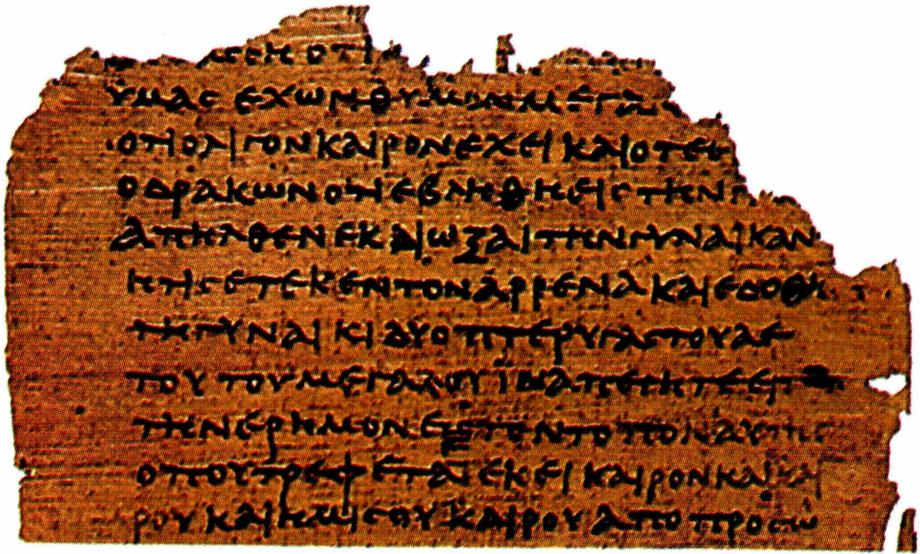 ΟΤΙ
ΥΜΑϹ ΕΧΩΝ ΘΥΜΟΝ ΜΕΓΑ
ΟΤΙ ΟΛΙΓΟΝ ΚΑΙΡΟΝ ΕΧΕΙ ΚΑΙ ΟΤΕ
Ο ΔΡΑΚΩΝ ΟΤΙ ΕΒΛΗΘΗ ΕΙϹ ΤΗΝ
ΑΠΗΛΘΕΝ ΕΚΔΙΩΞΑΙ ΤΗΝ ΓΥΝΑΙΚΑΝ
ΗΤΙϹ ΕΤΕΚΕΝ ΤΟΝ ΑΡΡΕΝΑ ΚΑΙ ΕΔΟΘΗ
ΤΗ ΓΥΝΑΙΚΙ ΔΥΟ ΠΤΕΡΥΓΑϹ ΤΟΥ ΑΕ
ΤΟΥ ΤΟΥ ΜΕΓΑΛΟΥ ΙΝΑ
ΤΗΝ ΕΡΗΜΟΝ ΕΙϹ ΤΟΝ ΤΟΠΟΝ ΑΥΤΗϹ
ΟΠΟΥ ΤΡΕΦΕΤΑΙ ΕΚΕΙ ΚΑΙΡΟΝ ΚΑΙ ΚΑΙ
ΡΟΥ ΚΑΙ ΗΜΙϹΟΥ ΚΑΙΡΟΥ ΑΠΟ ΠΡΟϹΩ